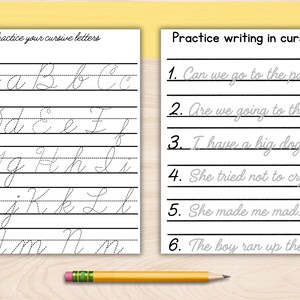 practice your cursive letters
a B b C c
d E e F f
g H h I i
j K k L l
m N n
Practice writing in curs
1. Can we go to the pa
2. Are we going to th
3. I have a big dog
4. She tried not to cr
5. She made me mad
6. The boy ran up the